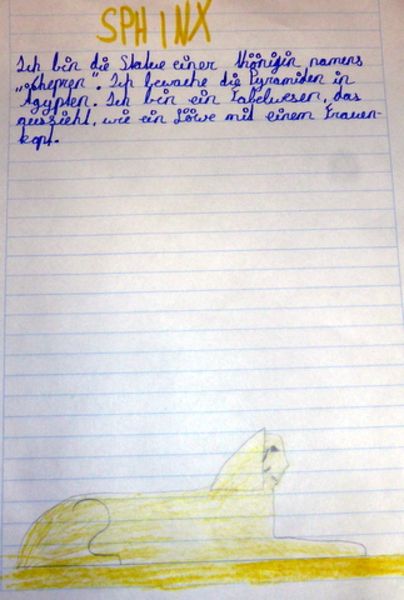 SPHINX
Ich bin die Statue einer Königin namens
„Chepren“. Ich bewache die Pyramiden in
Ägypten. Ich bin ein Fabelwesen, das
aussieht, wie ein Löwe mit einem Frauen-
kopf.